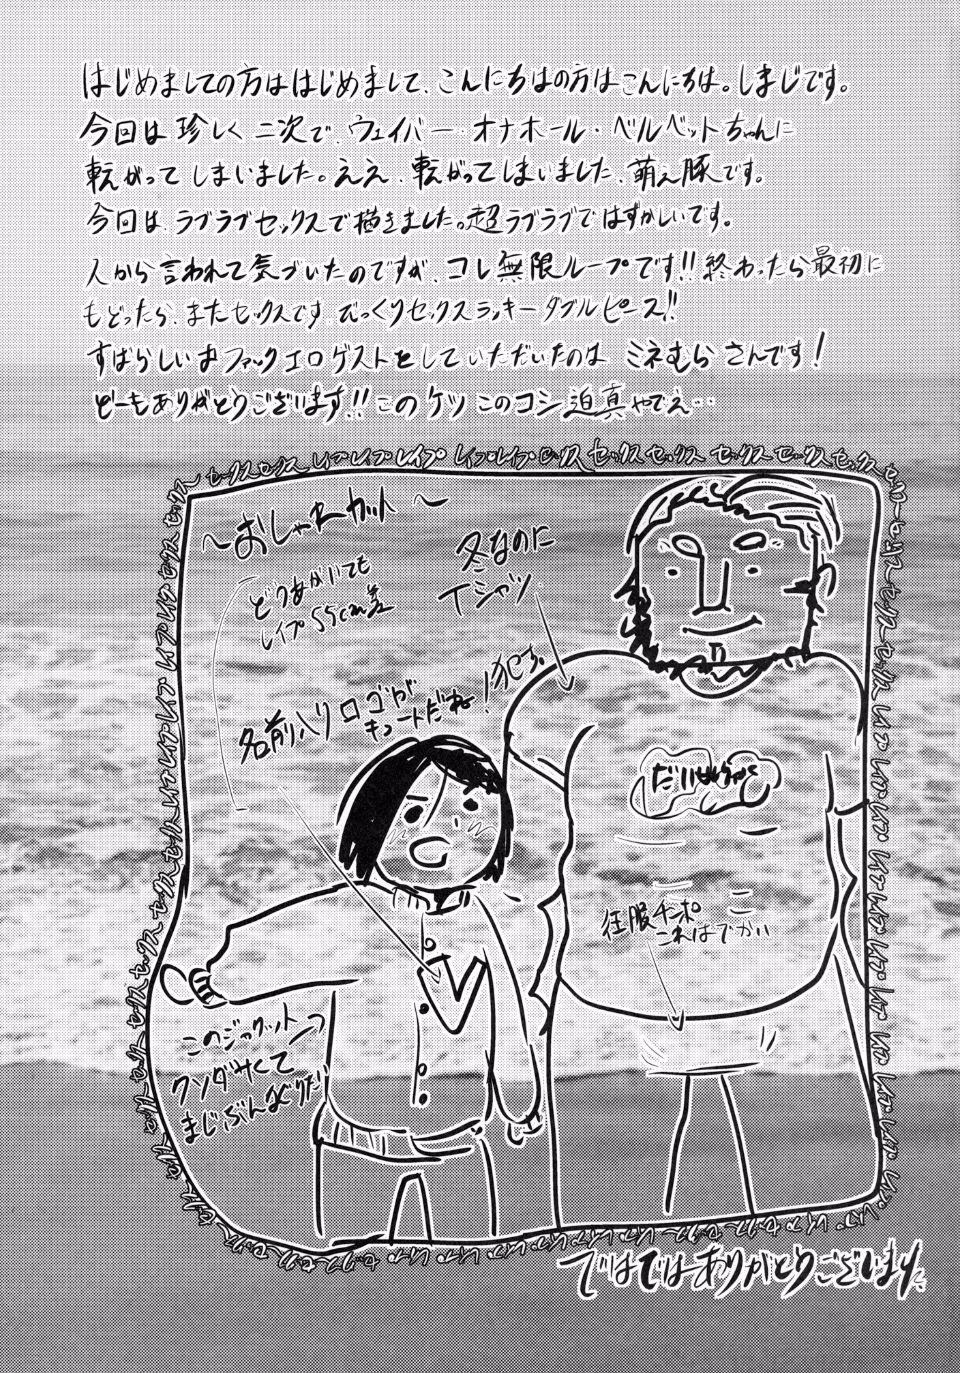 はじめましての方ははじめまして、こんにちはの方はこんにちは。しまじです。
今回は珍しく二次で、ウェイバー・オナホール・ベルベットちゃんに
転がってしまいました。ええ、転がってしまいました、萌え豚です。
今回は、ラブラブセックスで描きました。超ラブラブではずかしいです。
人から言われて気づいたのですが、コレ無限ループです!!終わったら最初に
もどったら、またセックスです、びっくりセックスラッキーダブルピース!!
すばらしいおファックエロゲストをしていただいたのは ミネむらさんです!
どーもありがとうございます!!このケツこのコシ迫真やでえ…
〜おしゃれカット〜
冬なのに
Tシャツ
どうあがいても
レイプ55cm差
名前入りロゴが
キュートだね!犯す。
征服チンポ
これはでかい
このジャケット
クソダサくて
まじぶんなぐりたい
ではではありがとうございます。